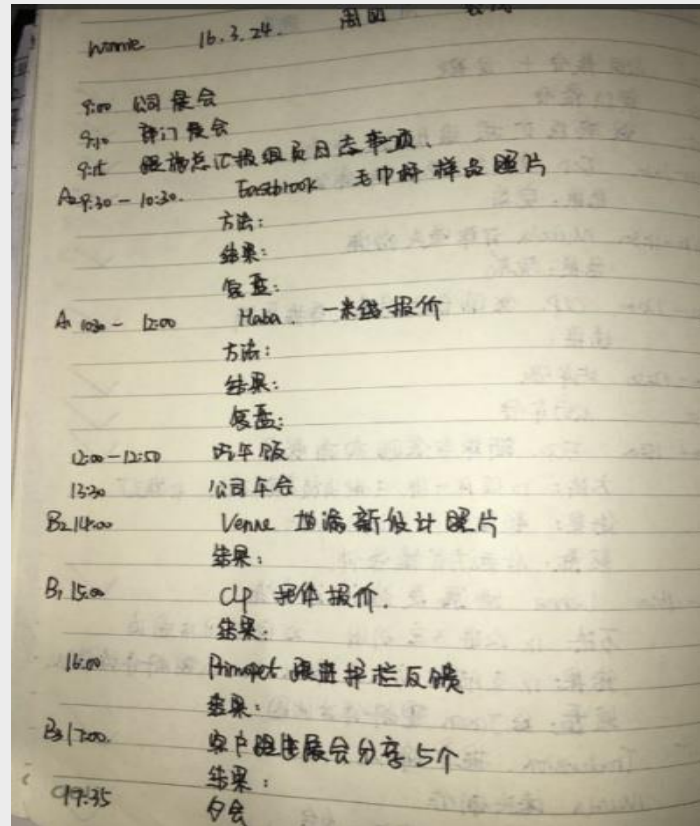 Winnie 16.3.24. 周四
9:00 公司晨会
9:10 部门晨会
9:15 跟施总汇报组员日志事项
A2 9:30 - 10:30. Eastbrook 毛巾杆样品照片
方法:
结果:
复盘:
A1 10:30 - 12:00 Haba. 一米线报价
方法:
结果:
复盘:
12:00-12:50 吃午饭
13:30 公司午会
B2 14:00 Venne 地漏新设计照片
结果:
B1 15:00 Clp 报价.
结果:
16:00 Primopet 跟进护栏反馈
结果:
B3 17:00. 客户跟进展会分享5个
结果:
17:35 夕会